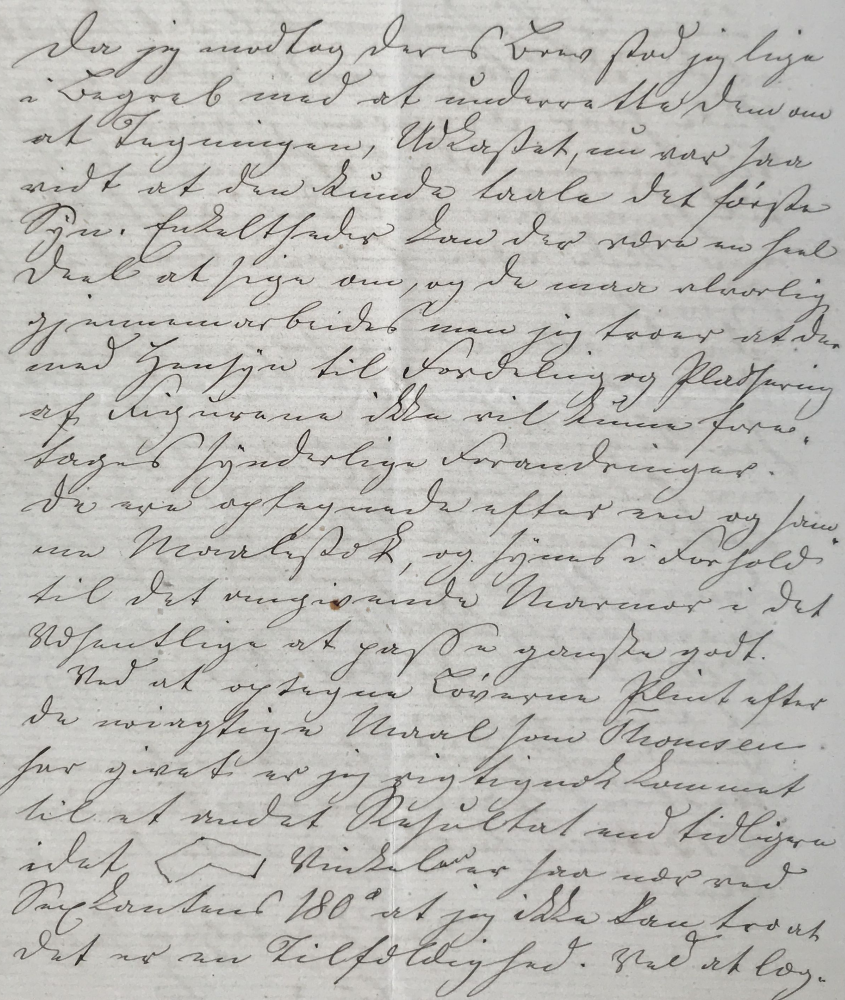 Da jeg modtog Deres Brev stod jeg lige
i Begreb med at underrette Dem om
at Tegningen, Udkastet, nu var saa
vidt at den kunde taale det første
Syn. Enkeltheder kan der være en heel
Deel at sige om, og de maa alvorlig
gjennemarbeides men jeg troer at der
med Hensyn til Fordeling og Plassering
af Figurene ikke vil kunne fore-
tages synderlige Forandringer.
De ere optegnede efter een og sam-
me Maalestok, og synes i Forhold
til det omgivende Marmor i det
Væsentlige at passe ganske godt.
Ved at optegne Løverne Plint efter
de nøiagtige Maal som Thomsen
har givet er jeg rigtignok kommet
til et andet Resultat end tidligere
idet Vinkelen er saa nær ved
Sexkantens 180° at jeg ikke kan tro at
det er en Tilfældighed. Ved at læg-